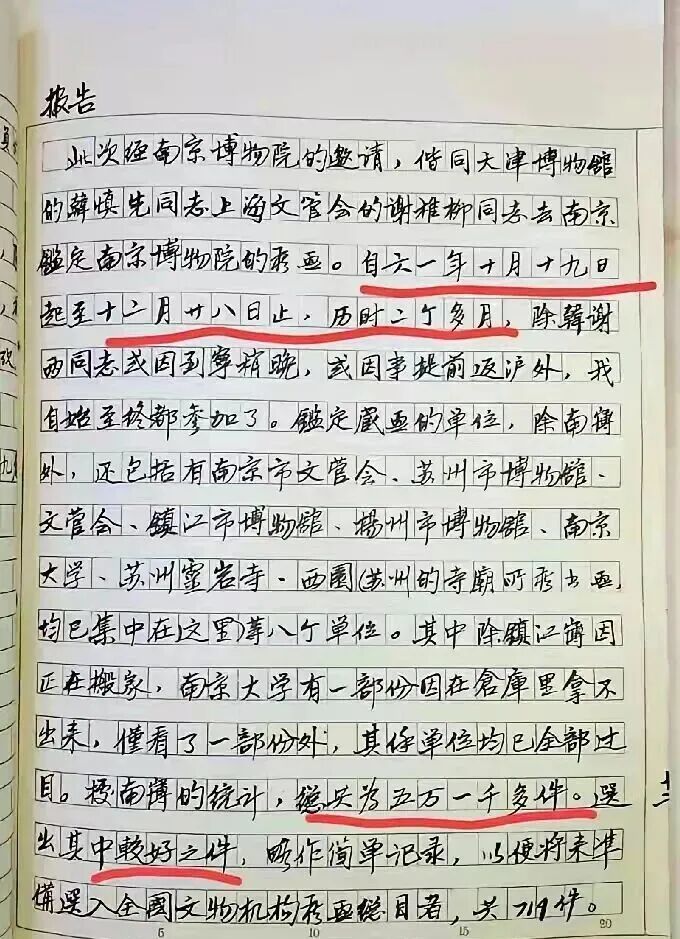 报告
此次经南京博物院的邀请，偕同天津博物舘
的韓慎先同志上海文管会的谢稚柳同志去南京
鑑定南京博物院的藏画。自六一年十月十九日
起至十二月廿八日止，历时二个多月，除韓谢
两同志或因到寧稍晚，或因事提前返沪外，我
自始至终都参加了。鑑定藏画的单位，除南博
外，还包括有南京市文管会、苏州市博物舘、
文管会、鎮江市博物舘、揚州市博物舘、南京
大学、苏州靈岩寺·西園(苏州的寺廟所藏书画，
均已集中在这里)等八个单位。其中除鎮江
正在搬家，南京大学有一部份因在倉庫里拿不
出来，僅看了一部份外，其余单位均已全部过
目。据南博的统计，總共为五万一千多件。选
出其中較好之件，略作简单记录，以便將来準
備選入全國文物机构藏画總目者，共719件。
5 10 15 20